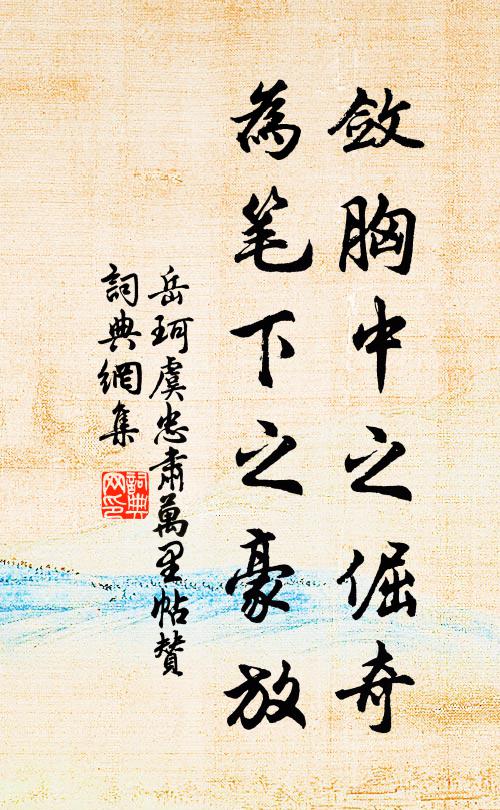 敛胸中之倔奇
為笔下之豪放
岳珂虞忠肅萬里帖贊
詞典網集
詞典网印